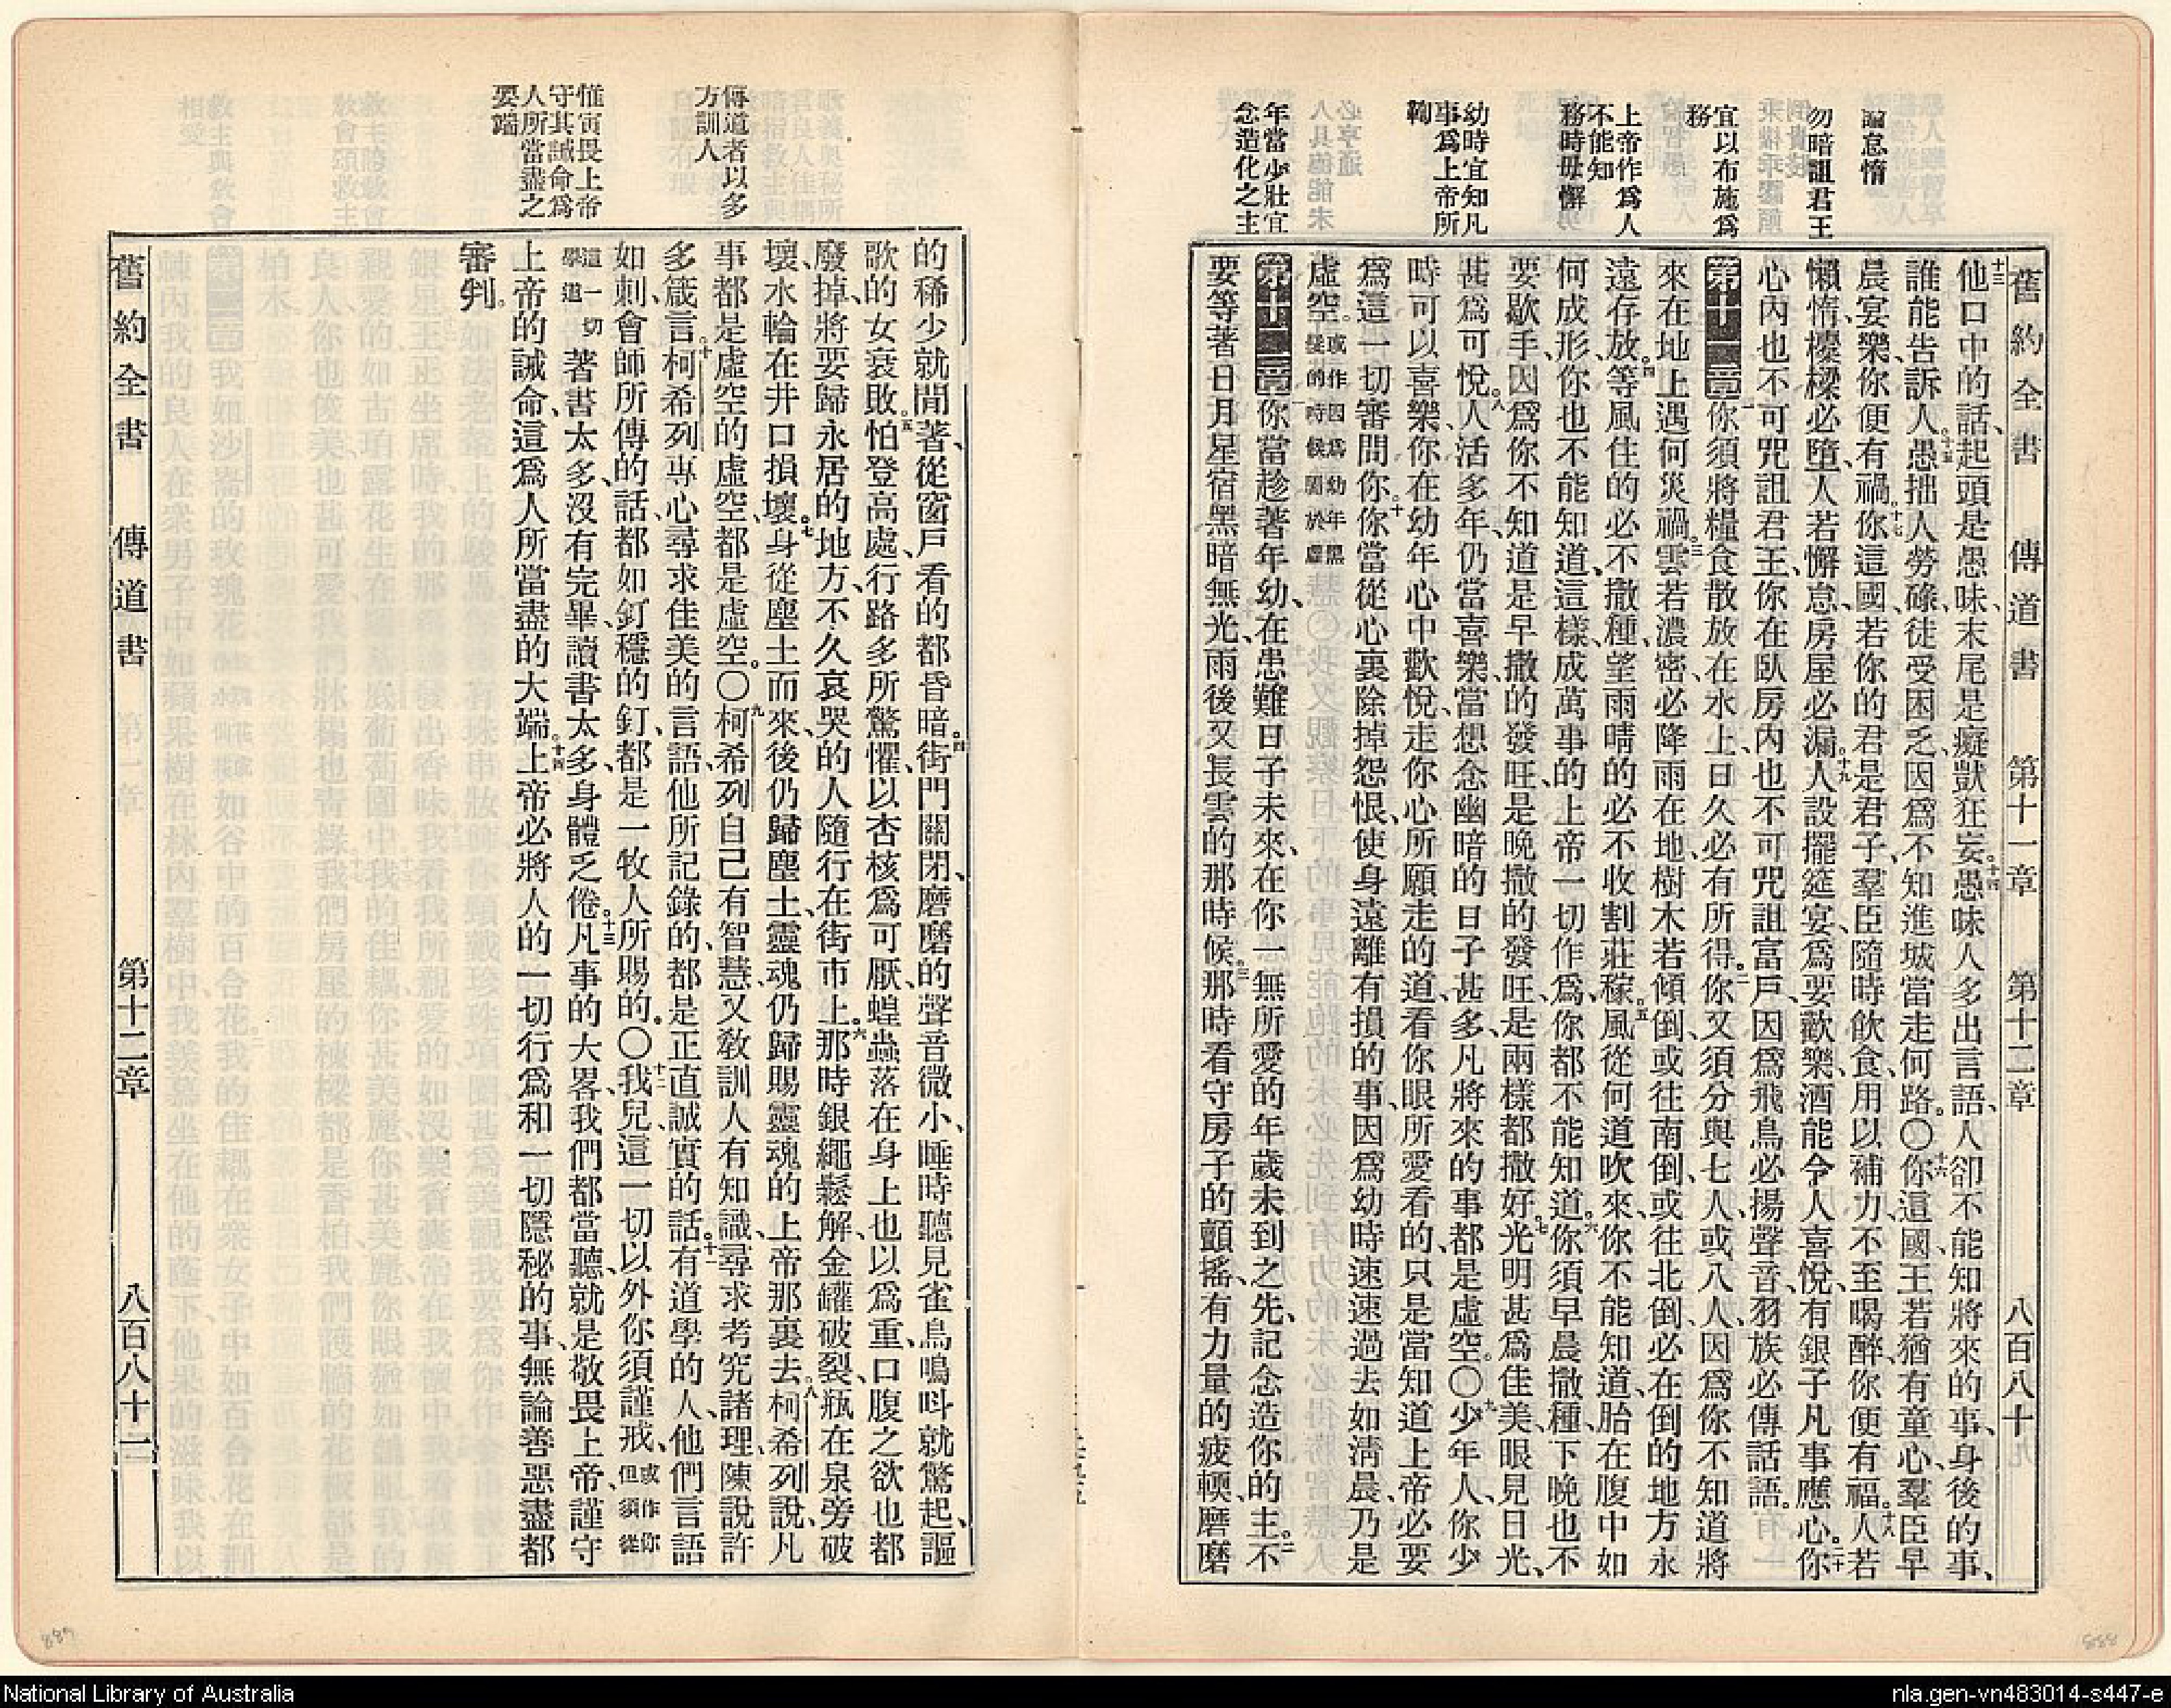 舊約全書　傳道書　第十一章　第十二章　八百八十九
論怠惰
勿暗詛君王
宜以布施爲
務
上帝作爲人
不能知
務時毋懈
幼時宜知凡
事爲上帝所
鞫
年當少壯宜
念造化之主
十三他口中的話、起頭是愚昧、末尾是癡獃狂妄。十四愚昧人多出言語、人卻不能知將來的事、身後的事、
誰能告訴人。十五愚拙人勞碌、徒受困乏、因爲不知進城當走何路。〇十六你這國、王若猶有童心、羣臣早
晨宴樂、你便有禍。十七你這國、若你的君是君子、羣臣隨時飲食、用以補力、不至喝醉、你便有福。十八人若
懶惰、櫌樑必墮、人若懈怠、房屋必漏。十九人設擺筵宴、爲要歡樂、酒能令人喜悅、有銀子凡事應心。二十你
心內也不可咒詛君王、你在臥房內也不可咒詛富戶、因爲飛鳥必揚聲音、羽族必傳話語。
第十一章一你須將糧食散放在水上、日久必有所得。二你又須分與七人或八人、因爲你不知道將
來在地上遇何災禍。三雲若濃密、必降雨在地、樹木若傾倒、或往南倒、或往北倒、必在倒的地方永
遠存放。四等風住的必不撒種、望雨晴的必不收割莊稼。五風從何道吹來、你不能知道、胎在腹中如
何成形、你也不能知道、這樣、成萬事的上帝一切作爲、你都不能知道。六你須早晨撒種、下晚也不
要歇手、因爲你不知道是早撒的發旺、是晚撒的發旺、是兩樣都撒好。七光明甚爲佳美、眼見日光、
甚爲可悅。八人活多年、仍當喜樂、當想念幽暗的日子甚多、凡將來的事、都是虛空。〇九少年人、你少
時可以喜樂、你在幼年心中歡悅、走你心所願走的道、看你眼所愛看的、只是當知道上帝必要
爲這一切審問你。十你當從心裏除掉怨恨、使身遠離有損的事、因爲幼時速速過去如淸晨、乃是
虛空。或作因爲幼年黑髮的時候關於虛
第十二章一你當趁著年幼、在患難日子未來、在你一無所愛的年歲未到之先、記念造你的主。二不
要等著日月星宿黑暗無光、雨後又長雲的那時候。三那時看守房子的顫搖、有力量的疲輭、磨磨
傳道者以多
方訓人
惟寅畏上帝
守其誡命爲
人所當盡之
要端
的稀少就閒著、從窗戶看的都昏暗。四街門關閉、磨磨的聲音微小、睡時聽見雀鳥鳴呌就驚起、謳
歌的女衰敗。五怕登高處、行路多所驚懼、以杏核爲可厭、蝗蟲落在身上也以爲重、口腹之欲也都
廢掉、將要歸永居的地方、不久哀哭的人隨行在街市上。六那時銀繩鬆解、金罐破裂、瓶在泉旁破
壞、水輪在井口損壞。七身從塵土而來、後仍歸塵土、靈魂仍歸賜靈魂的上帝那裏去。八柯希列說、凡
事都是虛空的虛空、都是虛空。〇九柯希列自己有智慧、又敎訓人有知識、尋求考究諸理、陳說許
多箴言。十柯希列專心尋求佳美的言語、他所記錄的、都是正直誠實的話。十一有道學的人、他們言語
如刺、會師所傳的話、都如釘穩的釘、都是一牧人所賜的。〇十二我兒、這一切以外你須謹戒、或作你但須從
這一切學道著書太多、沒有完畢、讀書太多、身體乏倦。十三凡事的大畧、我們都當聽、就是敬畏上帝、謹守
上帝的誡命、這爲人所當盡的大端。十四上帝必將人的一切行爲、和一切隱秘的事、無論善惡、盡都
審判。
舊約全書　傳道書　第十二章　八百八十一
889
888
National Library of Australia
nla.gen-vn483014-s447-e